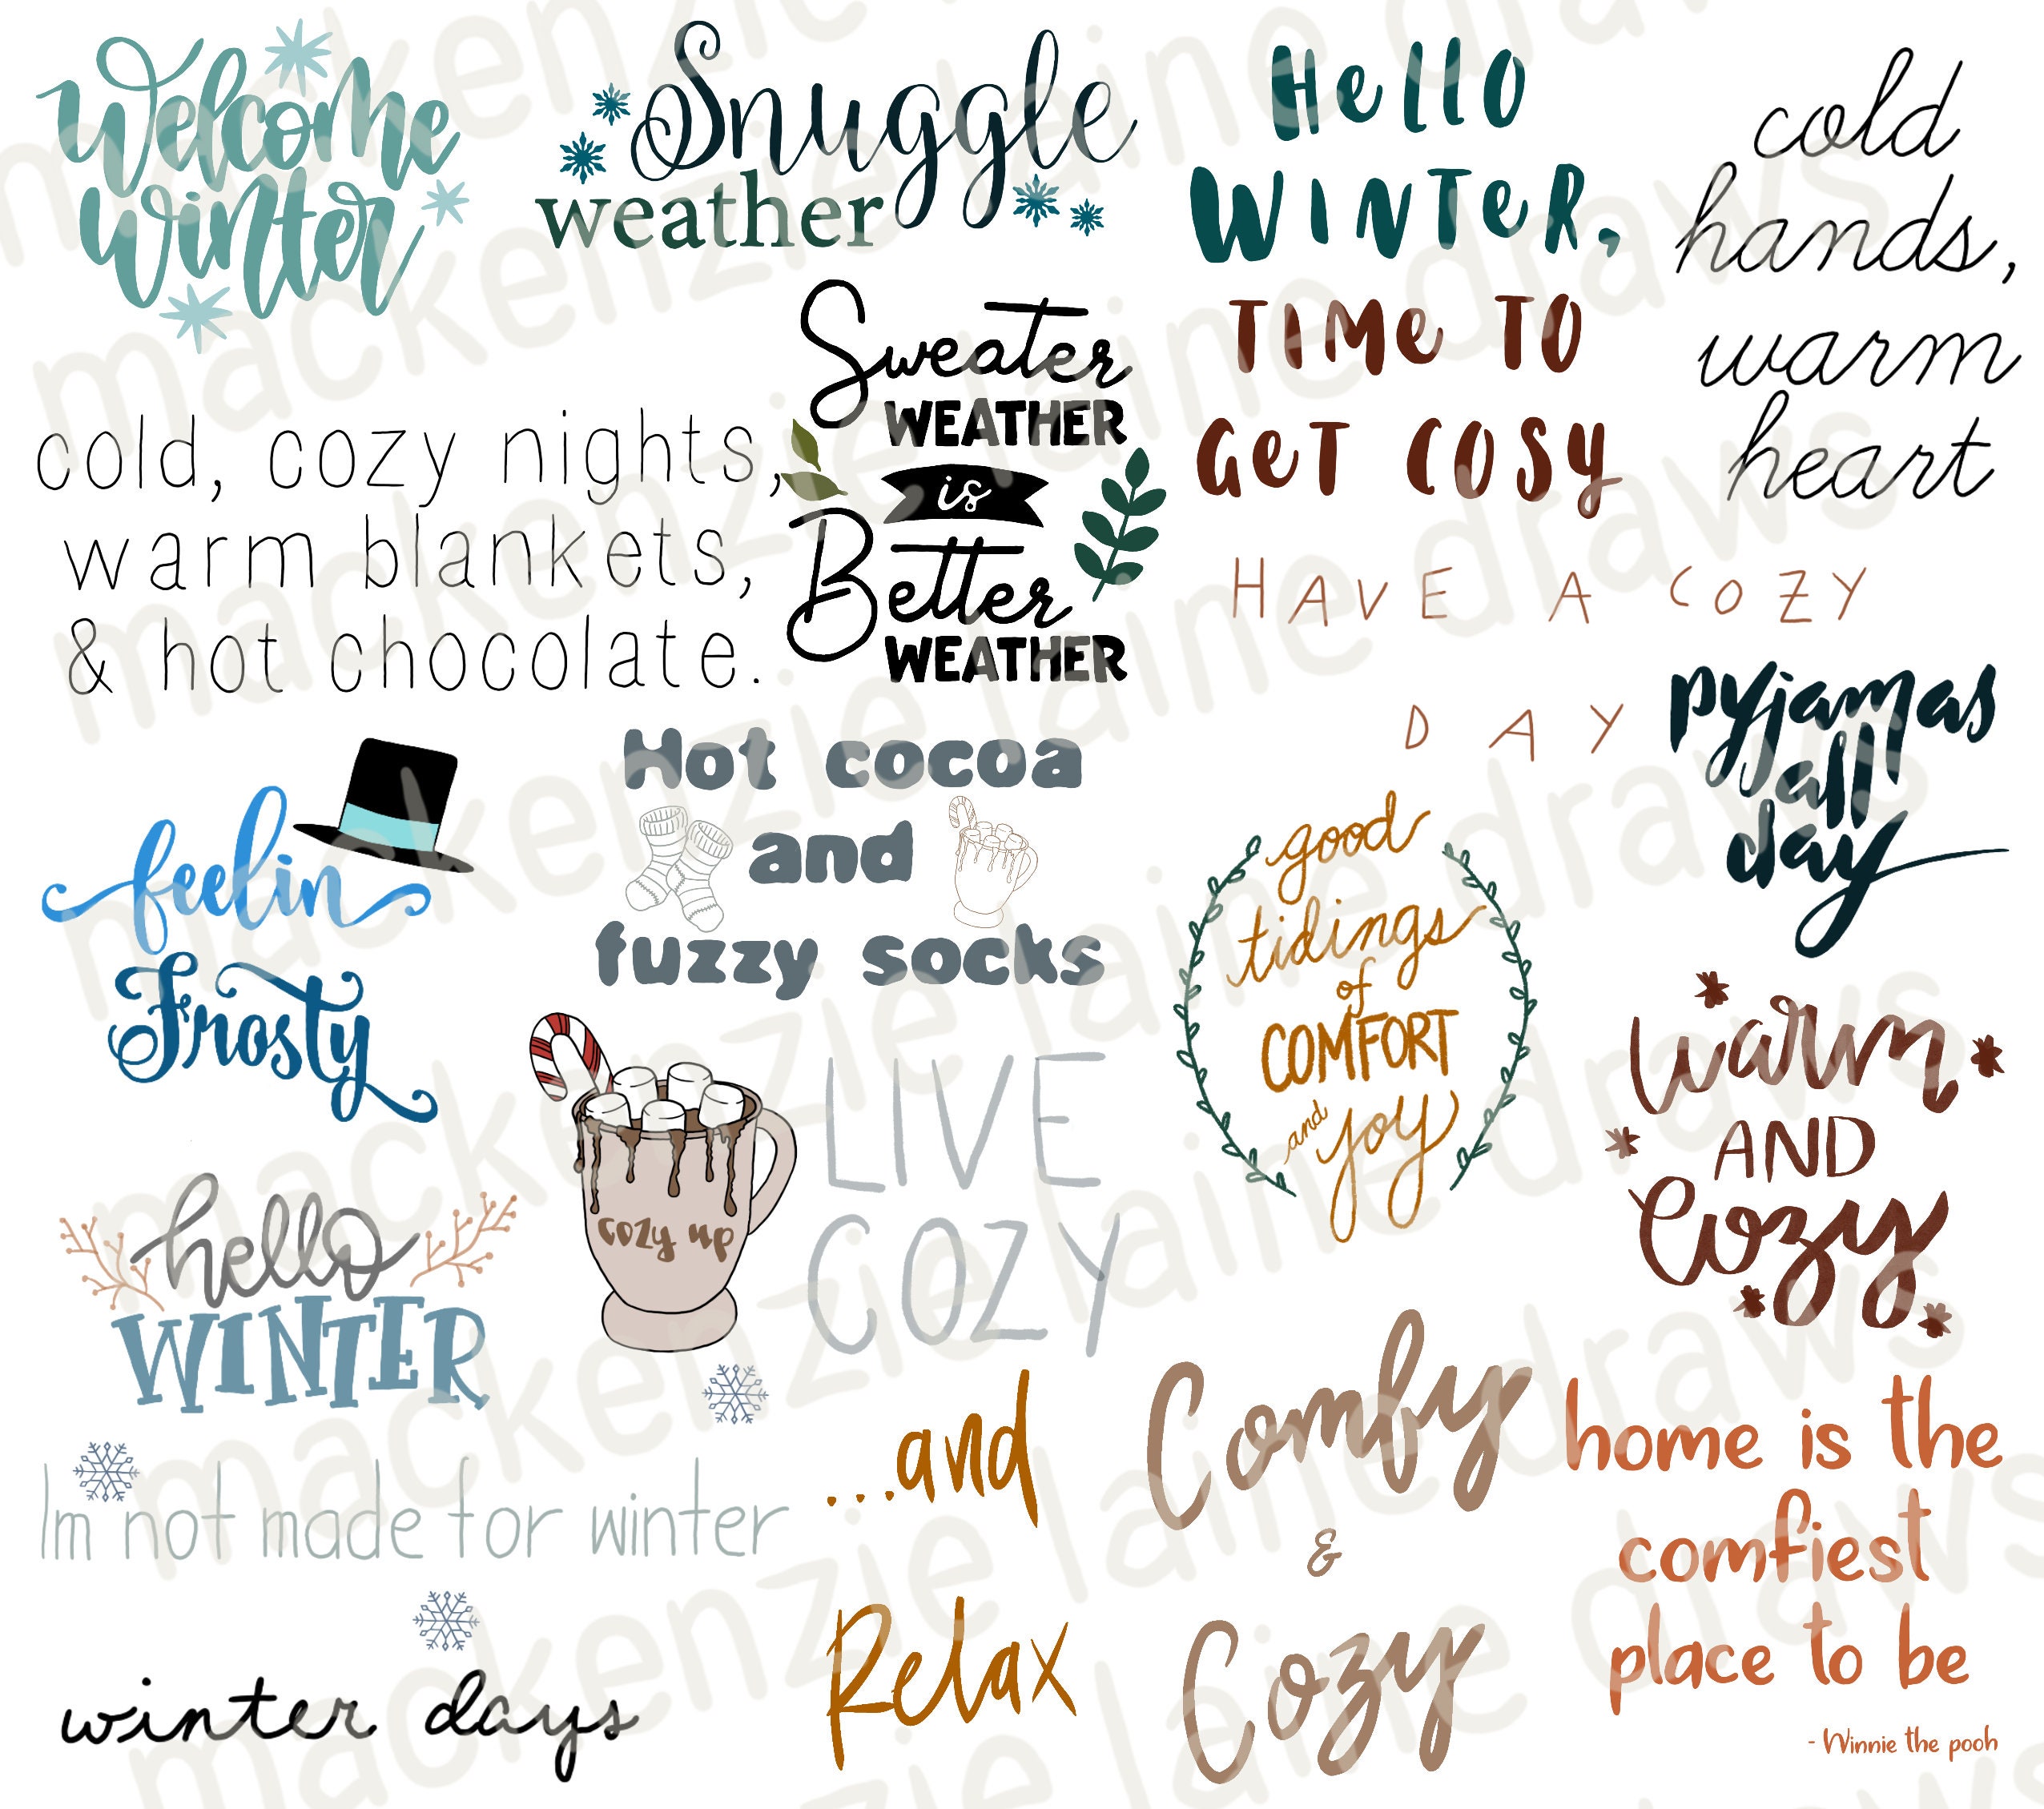 Welcome
winter
Snuggle
weather
Hello
WINTER,
TIME TO
GET COSY
cold
hands,
warm
heart
cold, cozy nights,
warm blankets,
& hot chocolate.
Sweater
WEATHER
is
Better
WEATHER
HAVE A COZY
DAY
pyjamas
all
day
feelin
Frosty
Hot cocoa
and
fuzzy socks
good
tidings
of
COMFORT
and
joy
warm
AND
Cozy
hello
WINTER
cozy up
LIVE
COZY
Im not made for winter
winter days
...and
Relax
Comfy
&
Cozy
home is the
comfiest
place to be
- Winnie the pooh
mackenzie laine draws
mackenzie laine draws
mackenzie laine draws
mackenzie laine draws
mackenzie laine draws
mackenzie laine draws